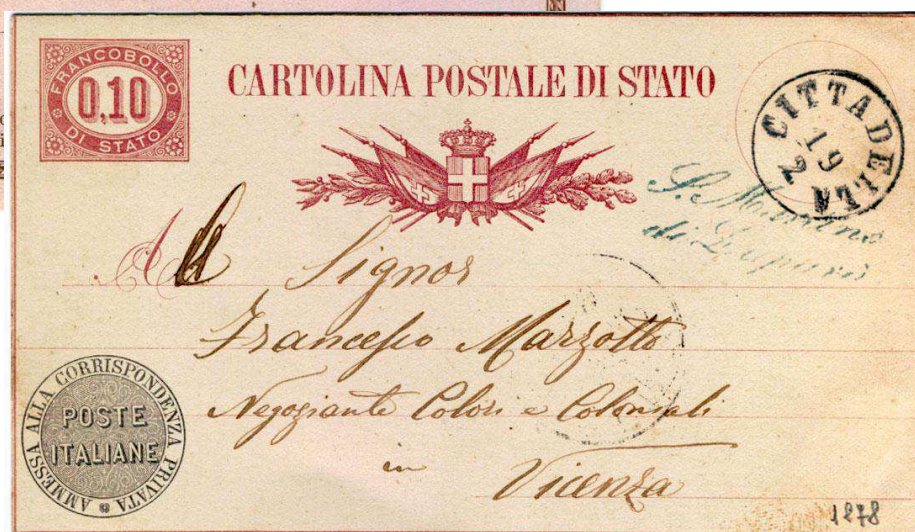 FRANCOBOLLO
0,10
DI STATO
CARTOLINA POSTALE DI STATO
CITTADELLA
19
2
S. Martino
di Lupari
All Signor
Francesco Marzotto
Negoziante Colori e Coloniali
in
Vicenza
AMMESSA ALLA CORRISPONDENZA PRIVATA
POSTE
ITALIANE
1878